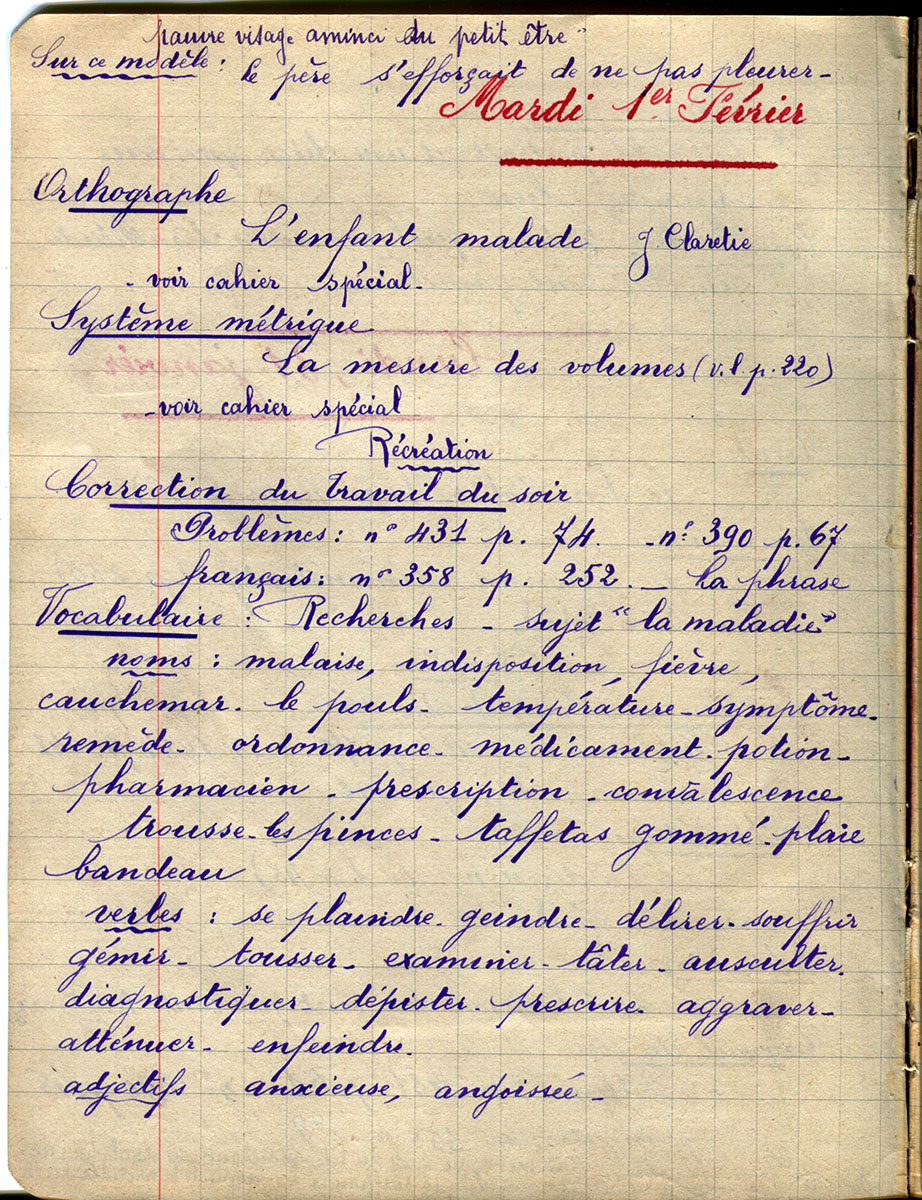 pauvre visage aminci du petit être"
Sur ce modèle : le père s'efforçait de ne pas pleurer-
Mardi 1er Février
Orthographe
L'enfant malade J Claretie
- voir cahier spécial -
Système métrique
La mesure des volumes (v.l p. 220)
- voir cahier spécial
Récréation
Correction du travail du soir
Problèmes : n° 431 p. 74. - n° 390 p. 67
français : n° 358 p. 252. - La phrase
Vocabulaire : Recherches - sujet "la maladie"
noms : malaise, indisposition, fièvre,
cauchemar - le pouls - température - symptôme -
remède - ordonnance - médicament - potion -
pharmacien - prescription - convalescence
trousse - les pinces - taffetas gommé - plaie
bandeau
verbes : se plaindre - geindre - délirer - souffrir
gémir - tousser - examiner - tâter - ausculter -
diagnostiquer - dépister - prescrire - aggraver -
atténuer - enfeindre.
adjectifs anxieuse, angoissée -